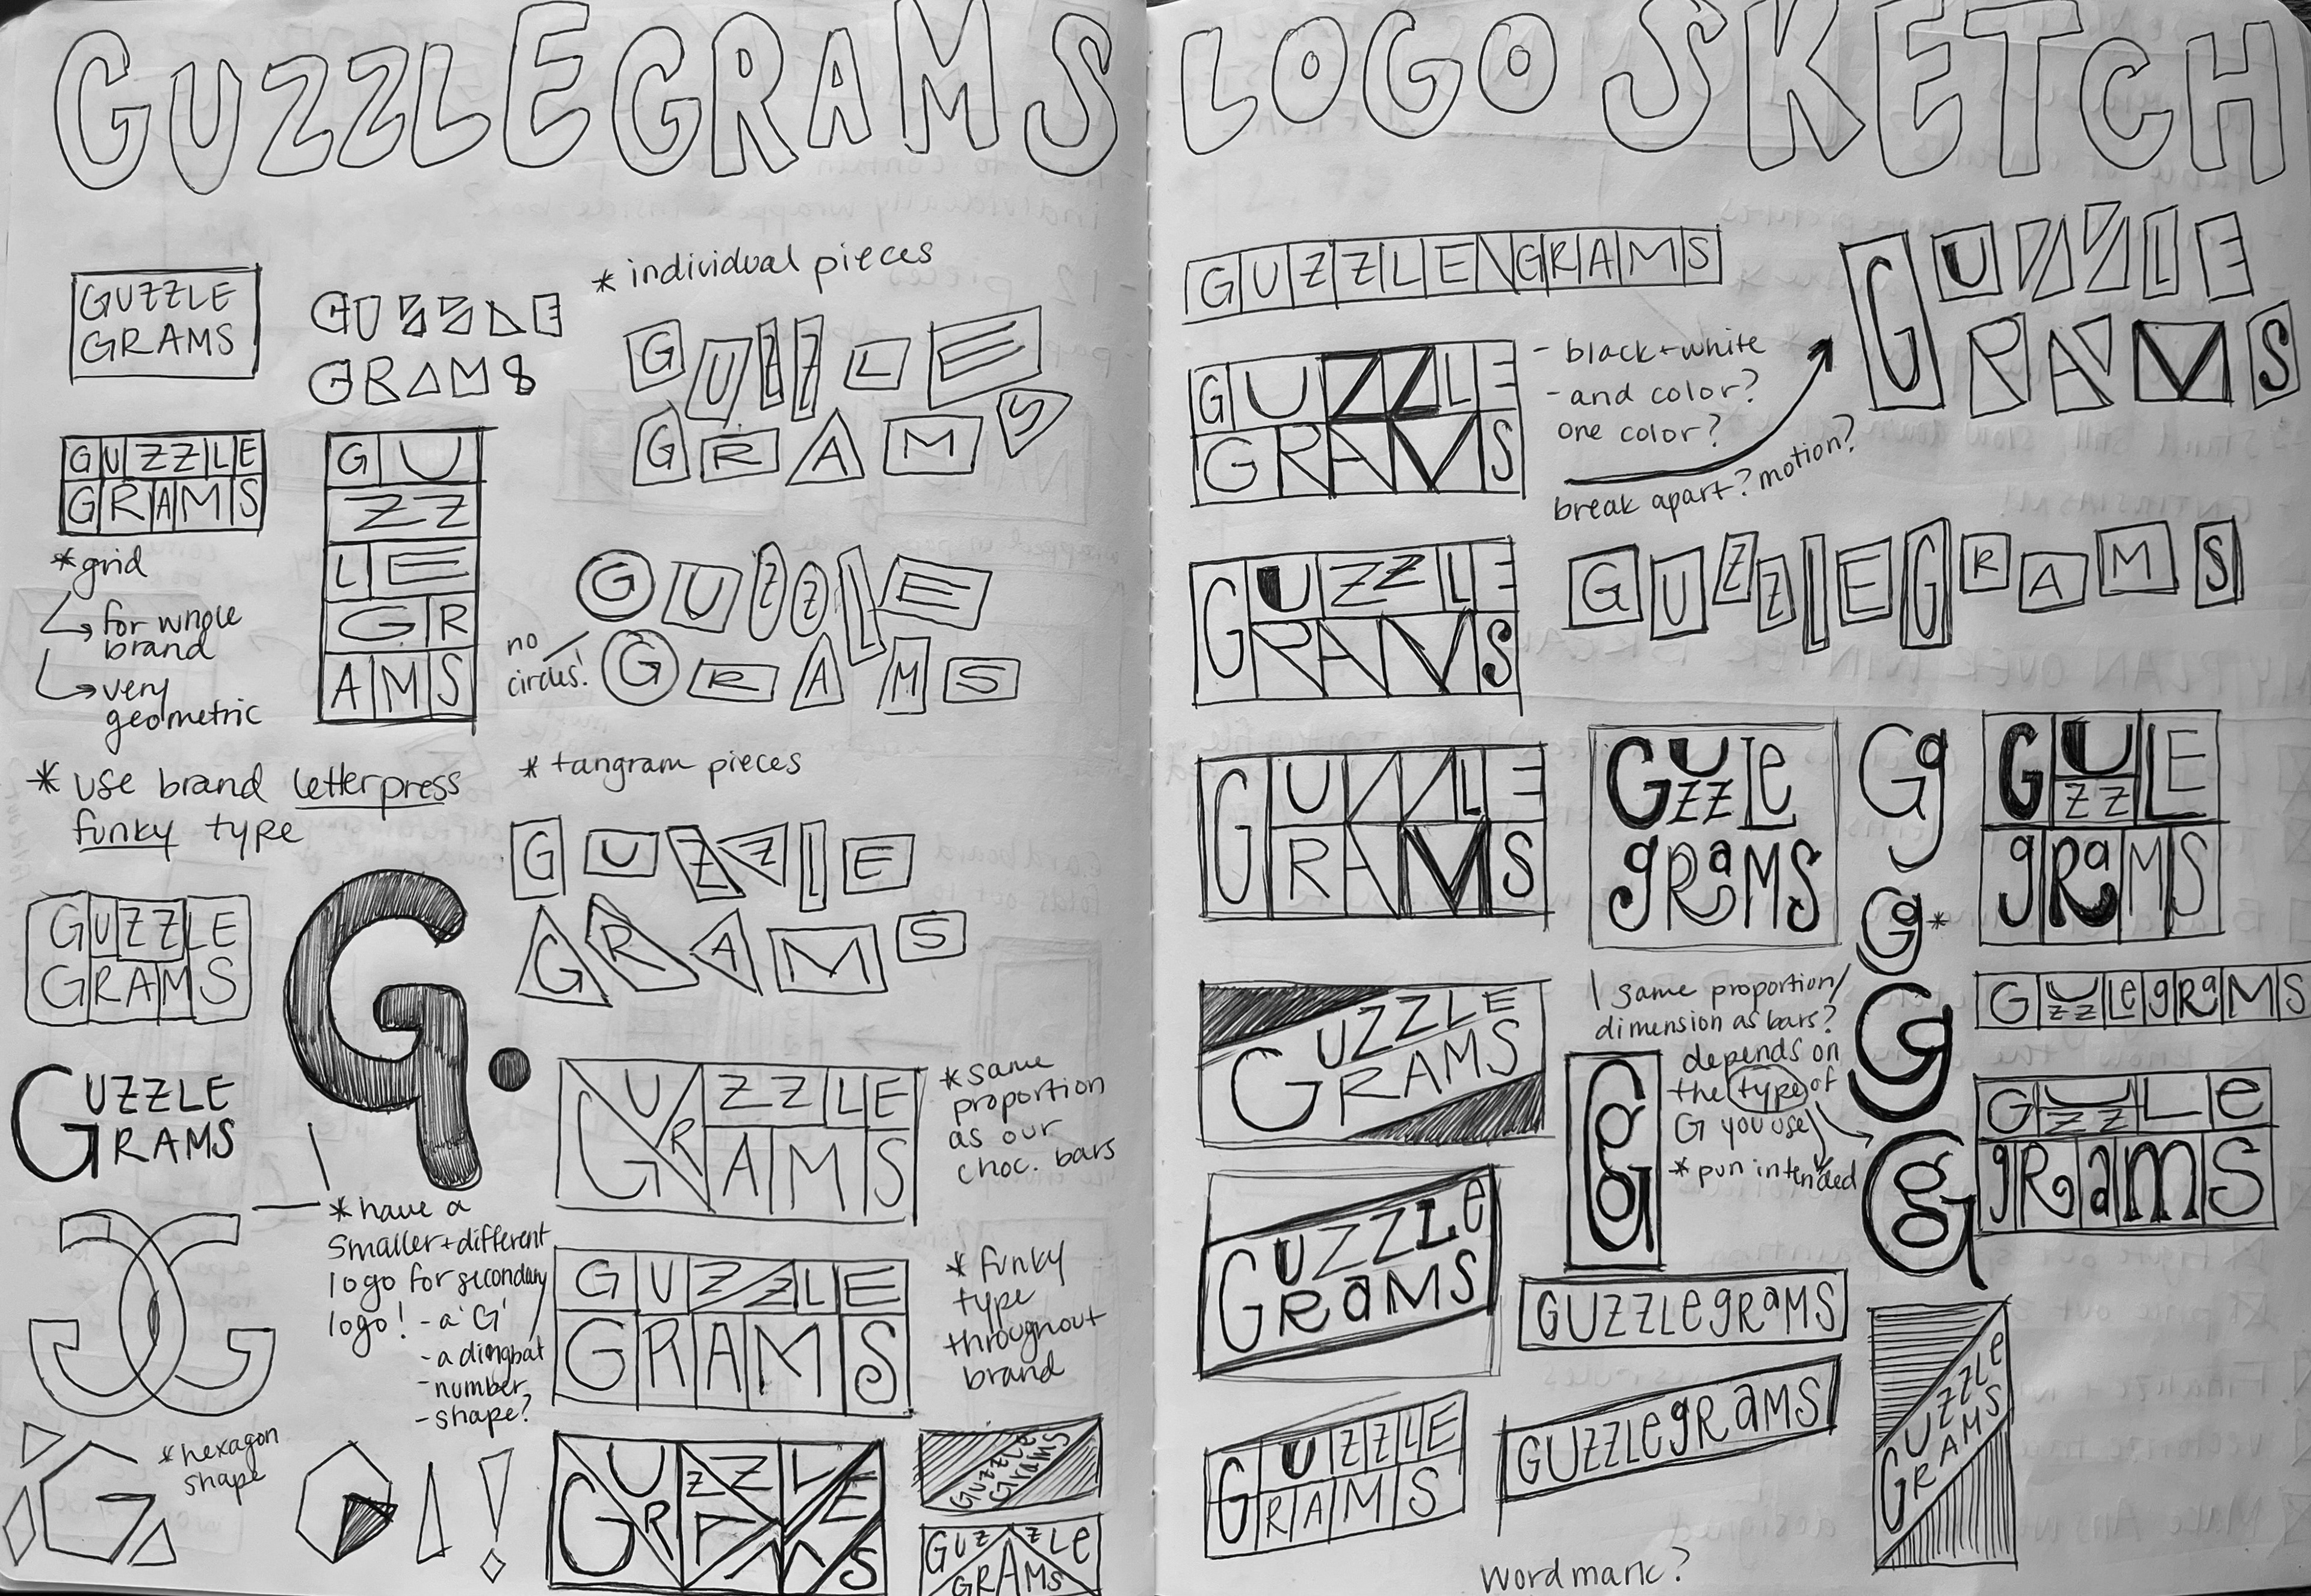 GUZZLEGRAMS LOGO SKETCH
GUZZLE
GRAMS
GUZZLE
GRAMS
* individual pieces
GUZZLE
GRAMS
GUZZLE
GRAMS
GU
ZZ
LE
GR
AMS
* grid
for whole
brand
very
geometric
no
circles!
GUZZLE
GRAMS
* use brand letterpress
funky type
* tangram pieces
GUZZLE
GRAMS
GUZZLE
GRAMS
G.
GUZZLE
GRAMS
GUZZLE
GRAMS
* same
proportion
as our
choc. bars
* have a
smaller + different
logo for secondary
logo! - a 'G'
- a dingbat
- number
- shape?
GG
GUZZLE
GRAMS
* funky
type
throughout
brand
* hexagon
shape
G
GUZZLE
GRAMS
GUZZLe
GRAMS
GUZZLe
GRAMS
GUZZLEGRAMS
GUZZLE
GRAMS
- black + white
- and color?
one color?
break apart? motion?
GUZZLE
RAMS
GUZZLE
RAMS
GUZZLEGRAMS
GUZZLE
RAMS
GUZZLe
gRaMS
Gg
Gg *
GUZZLE
gRaMS
GUZZLE
GRAMS
same proportion/
dimension as bars?
depends on
the type of
G you use
* pun intended
Gg
Gg
Gg
GUZZLegRaMS
GUZZLe
gRaMS
GUZZLe
GRaMS
GUZZLegRaMS
GUZZLE
GRAMS
GUZZLegRaMS
GUZZLe
GRAMS
wordmark?